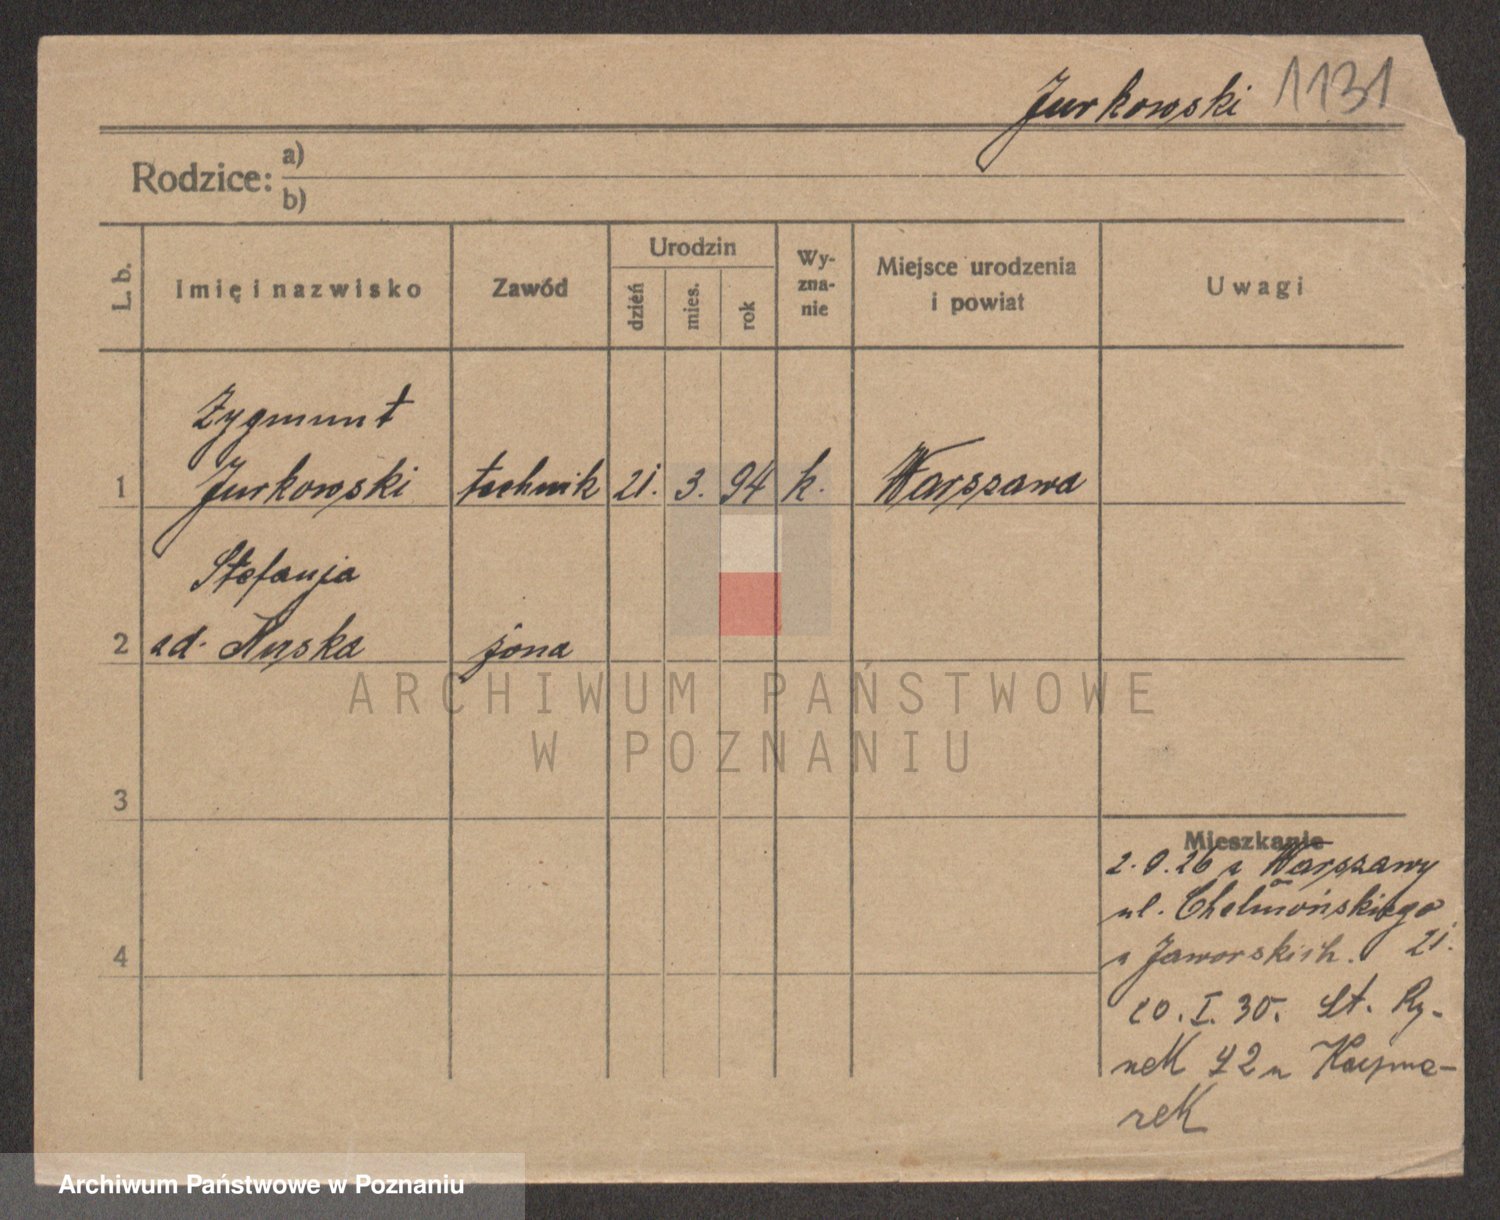 Jurkowski 1131
Rodzice: a)
b)
L. b.
Imię i nazwisko
Zawód
Urodzin
dzień
mies.
rok
Wy-
zna-
nie
Miejsce urodzenia
i powiat
Uwagi
Zygmunt
1 Jurkowski technik 21. 3. 94 k. Warszawa
Stefanja
2 żona
3
4
Mieszkanie
26 z Warszawy
ul. Chełmońskiego
Jaworskich. 21.
20. I. 30. St. Ry-
nek 42 u Kaczma-
rek
ARCHIWUM PAŃSTWOWE
W POZNANIU
Archiwum Państwowe w Poznaniu